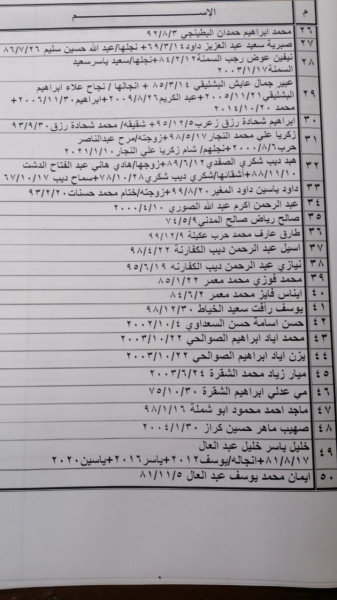 م الإســـــم
٢٦ محمد ابراهيم حمدان البطنيجي ٩٢/٨/٣
٢٧ صبرية سعيد عبد العزيز داود ٦٩/٣/١٤+ نجلها/عبد الله حسين سليم ٨٦/٧/٢٦
٢٨ نيفين عوض رجب السمنة ٨٤/٢/١٢+نجلها/سعيد ياسر سعيد
السمنة ٢٠٠٣/١/١٧
٢٩ عبير جمال عايش البشليقي ٨٥/٣/١٤ + انجالها / نجاح علاء ابراهيم
البشليقي ٢٠٠٥/١١/٢١+عبد الكريم ٢٠٠٩/٨/٢٦+ابراهيم ٢٠٠٦/١١/٣٠+
محمد ٢٠١٤/١٠/٢٠
٣٠ ابراهيم شحادة رزق زعرب ٩٥/١٢/٥+ شقيقه/ محمد شحادة رزق ٩٣/٩/٣٠
٣١ زكريا علي محمد النجار ٩٨/٥/١٧+زوجته/مرح عبدالناصر
حرب ٢٠٠٠/٨/٦+نجلهم/شام زكريا علي النجار ٢٠٢١/١/١٠
٣٢ هبد ديب شكري الصفدي ٨٩/٦/١٢+زوجها/هادي هاني عبد الفتاح الدشت
٨٨/١١/١٠+أشقائها/شكري ديب شكري ٧٨/١٠/٢٨+سماح ديب ٦٧/١٠/١٧
٣٣ داود ياسين داود المغير ٩٩/٨/٢٠+زوجته/ختام محمد حسنات ٩٣/٢/٢٠
٣٤ عبد الرحمن اكرم عبد الله الصوري ٢٠٠٠/٤/١٠
٣٥ صالح رياض صالح المدني ٧٤/٥/٩
٣٦ طارق عارف محمد حرب عكيلة ٩٩/١٢/٩
٣٧ اسيل عبد الرحمن ديب الكفارنة ٩٨/٤/٢٢
٣٨ نيازي عبد الرحمن ديب الكفارنه ٩٥/٦/١٩
٣٩ محمد فوزي محمد معمر ٨٥/١/٢٢
٤٠ ايناس فايز محمد معمر ٨٤/٦/٢
٤١ يوسف رافت سعيد الخياط ٩٨/١٢/٣٠
٤٢ حسن اسامة حسن السعداوي ٢٠٠٢/١٠/٤
٤٣ محمد اياد ابراهيم الصوالحي ٢٠٠٣/١٠/٢٢
٤٤ يزن اياد ابراهيم الصوالحي ٢٠٠٣/١٠/٢٢
٤٥ ميار زياد محمد الشقرة ٢٠٠٣/٦/٢٤
٤٦ مي عدلي ابراهيم الشقرة ٧٥/١٠/٣٠
٤٧ ماجد احمد محمود ابو شملة ٩٨/١/١٦
٤٨ صهيب ماهر حسين كراز ٢٠٠٤/١/٣٠
٤٩ خليل ياسر خليل عبد العال
٨١/٨/١٧+انجاله/يوسف ٢٠١٢+ياسر ٢٠١٦+ياسين ٢٠٢٠
٥٠ ايمان محمد يوسف عبد العال ٨١/١١/٥